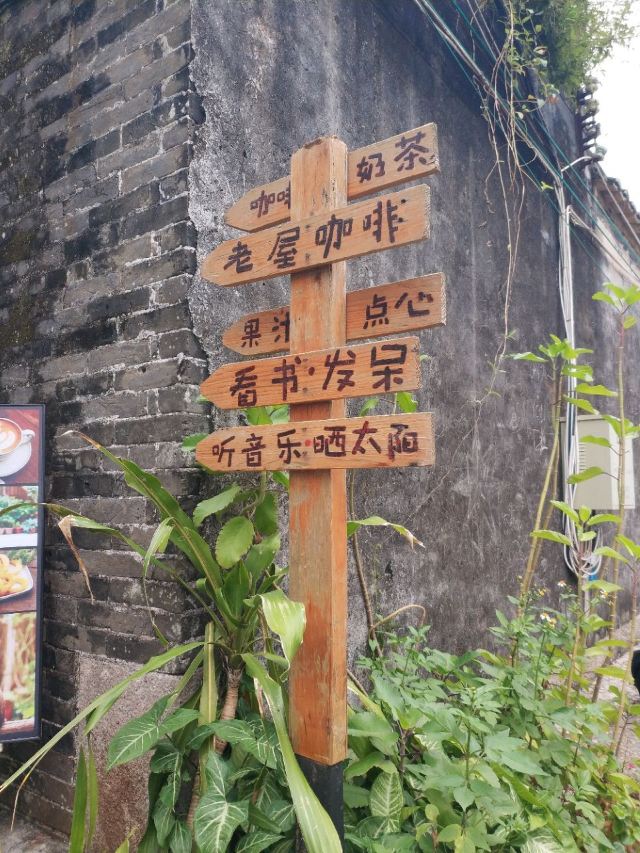 咖啡 奶茶
老屋咖啡
果汁 点心
看书·发呆
听音乐·晒太阳